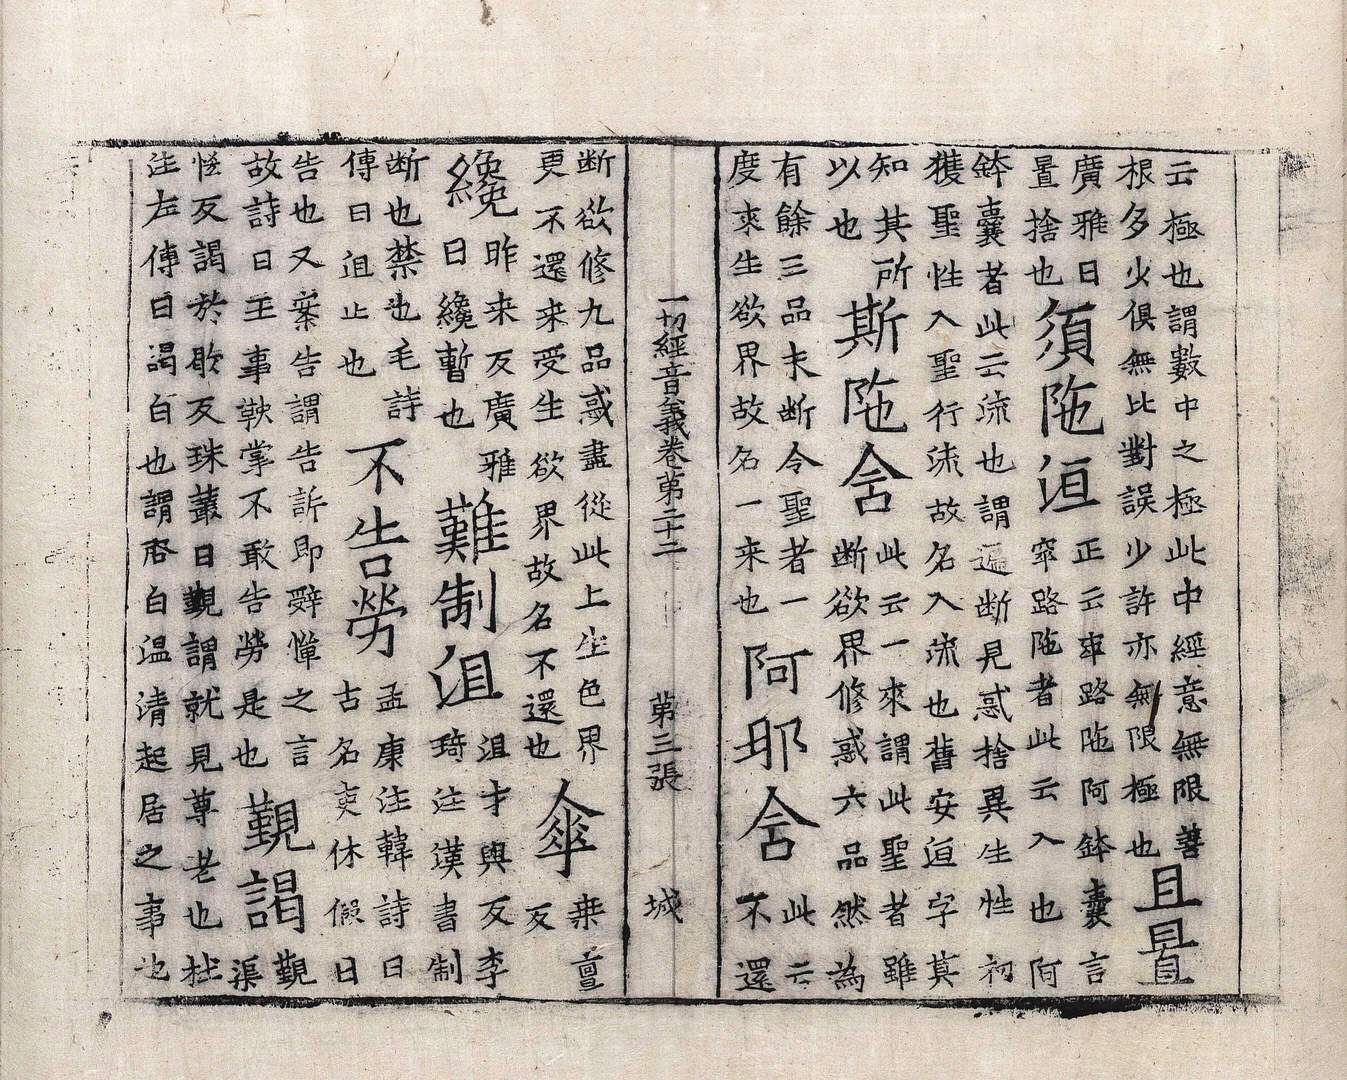 云極也謂數中之極此中經意無限善
根多少俱無比對誤少許亦無限極也
且置
廣雅曰
置捨也
須陁洹
正云窣路陁阿鉢囊言
窣路陁者此云入也阿
鉢囊者此云流也謂遍断見惑捨異生性初
獲聖性入聖行流故名入流也舊安洹字莫
知其所
以也
斯陁含
此云一來謂此聖者雖
断欲界修惑六品然為
有餘三品未断令聖者一
度來生欲界故名一来也
阿那含
此云
不還
一切經音義卷苐二十二 苐三張 城
断欲修九品惑盡從此上生色界
更不還来受生欲界故名不還也
傘
桒亶
反
纔
昨来反廣雅
曰纔暫也
難制沮
沮才與反李
琦注漢書制
断也禁也毛詩
傳曰沮止也
不告勞
孟康注韓詩曰
古名吏休假曰
告也又案告謂告訴即辤憚之言
故詩曰王事鞅掌不敢告勞是也
覲謁
覲
渠
恡反謁於歇反珠叢曰覲謂就見尊老也杜
注左傳曰謁白也謂啓白温清起居之事也